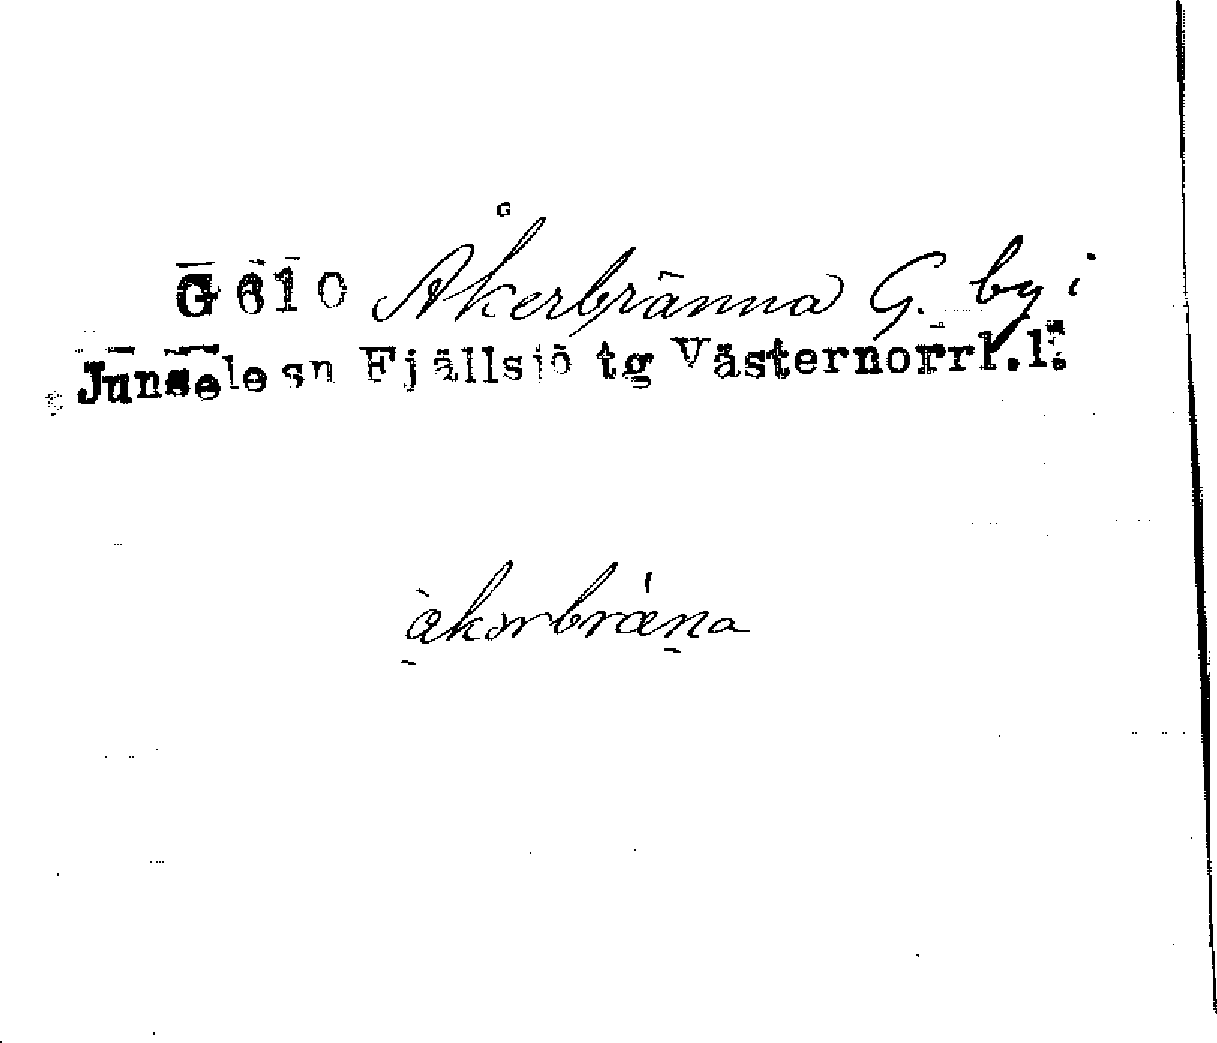 G 610 Åkerbränna G. by i
Junsele sn Fjällsjö tg Västernorrl.l.
åkərbræna